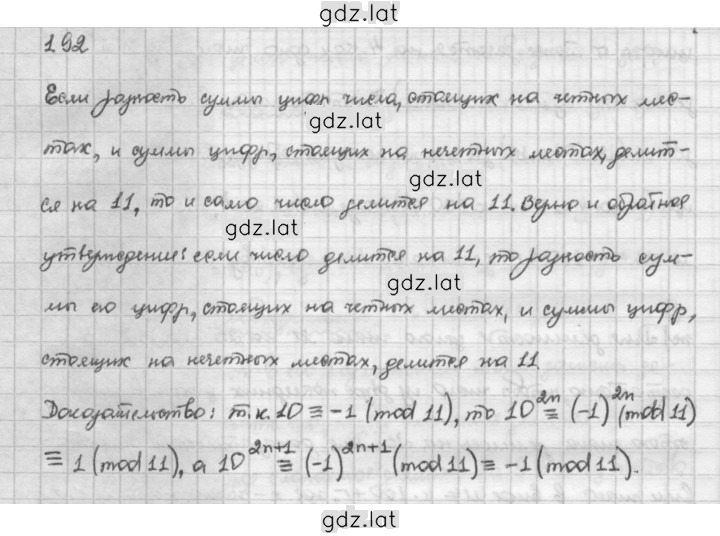 gdz.lat
192
Если разность суммы цифр числа, стоящих на четных мес-
gdz.lat
тах, и суммы цифр, стоящих на нечетных местах, делит-
gdz.lat
ся на 11, то и само число делится на 11. Верно и обратное
gdz.lat
утверждение: если число делится на 11, то разность сум-
gdz.lat
мы его цифр, стоящих на четных местах, и суммы цифр,
стоящих на нечетных местах, делится на 11.
Доказательство: т.к. 10 ≡ -1 (mod 11), то 10²ⁿ ≡ (-1)²ⁿ (mod 11)
≡ 1 (mod 11), а 10²ⁿ⁺¹ ≡ (-1)²ⁿ⁺¹ (mod 11) ≡ -1 (mod 11).
gdz.lat